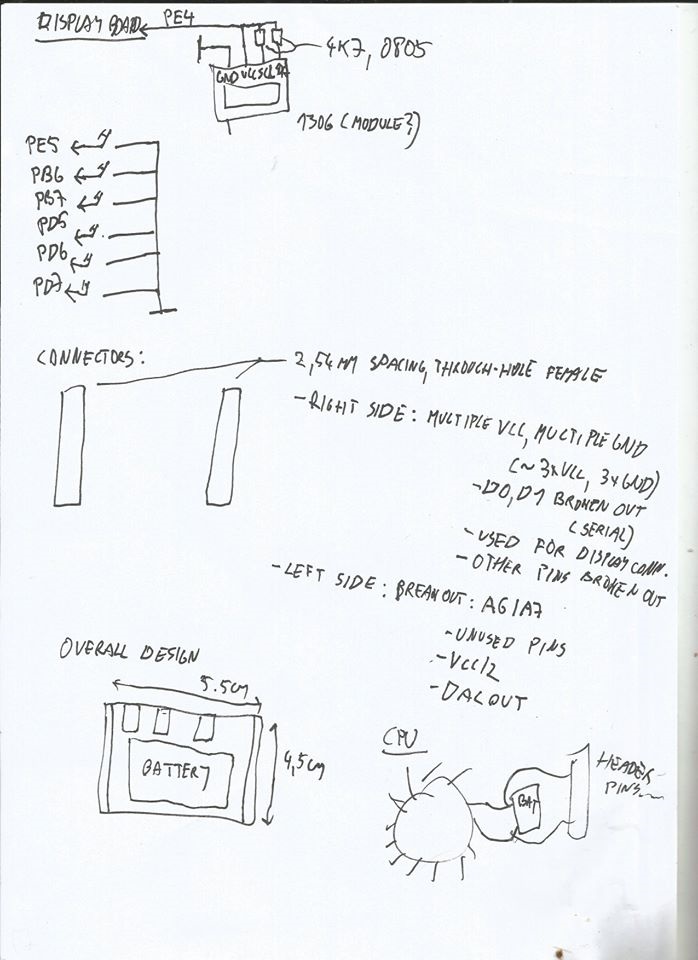 DISPLAY BOARD PE4
4K7, 0805
GND VCC SCL
1306 (MODULE?)
PE5
PB6
PB7
PD5
PD6
PD7
CONNECTORS:
2,54MM SPACING, THROUGH-HOLE FEMALE
-RIGHT SIDE: MULTIPLE VCC, MULTIPLE GND
(~3xVCC, 3xGND)
-D0, D1 BROKEN OUT
(SERIAL)
-USED FOR DISPLAY CONN.
-OTHER PINS BROKEN OUT
-LEFT SIDE: BREAKOUT: A6/A7
-UNUSED PINS
-VCC/2
-DAC OUT
OVERALL DESIGN
5.5cm
BATTERY
4,5cm
CPU
BAT
HEADER
PINS